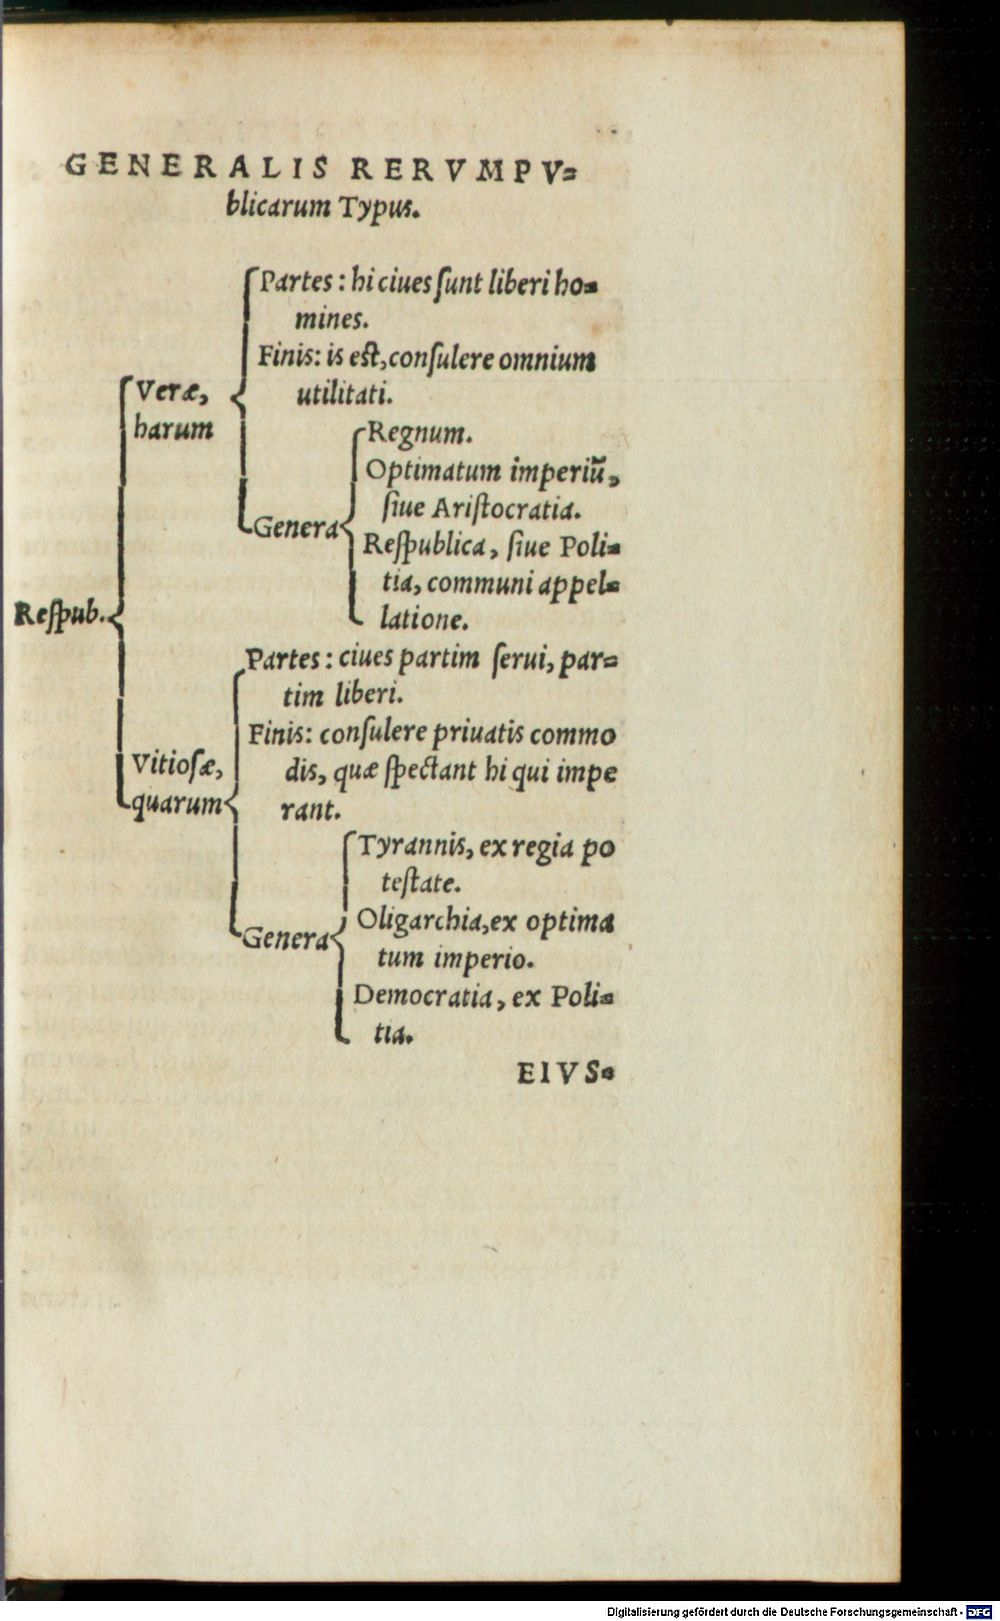 GENERALIS RERVMPV⸗
blicarum Typus.
Partes: hi ciues ſunt liberi ho⸗
mines.
Finis: is eſt, conſulere omnium
utilitati.
Veræ,
harum
Regnum.
Optimatum imperiũ,
ſiue Ariſtocratia.
Genera
Reſpublica, ſiue Poli⸗
tia, communi appel⸗
latione.
Reſpub.
Partes: ciues partim ſerui, par⸗
tim liberi.
Finis: conſulere priuatis commo
dis, quæ ſpectant hi qui impe
rant.
Vitioſæ,
quarum
Tyrannis, ex regia po
teſtate.
Oligarchia, ex optima
tum imperio.
Genera
Democratia, ex Poli⸗
tia.
EIVS⸗
Digitalisierung gefördert durch die Deutsche Forschungsgemeinschaft - DFG